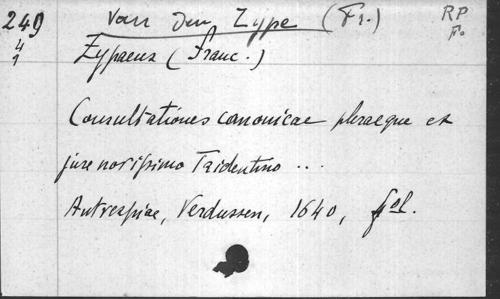 249
4
1
Van Den Zype (Fr.)
RP
Fo.
Zypaeus (Franc.)
Consultationes canonicae pleraeque ex
jure novissimo Tridentino ...
Antverpiae, Verdussen, 1640, fol.